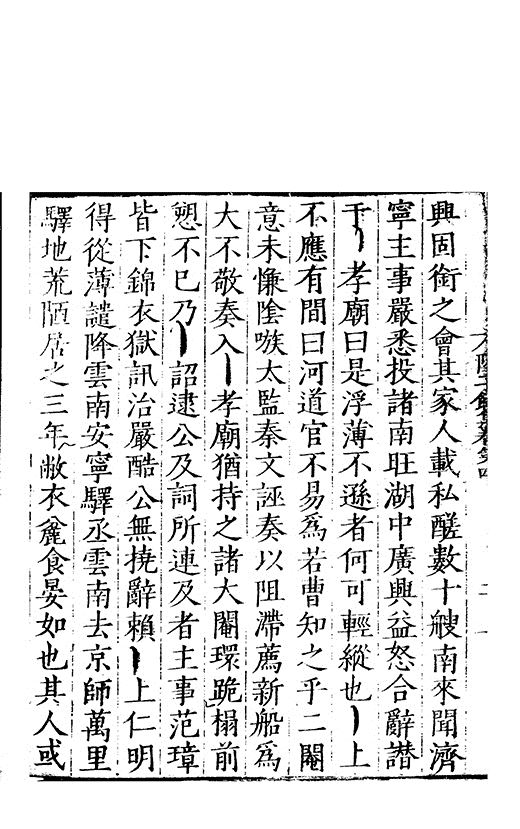 興固銜之會其家人載私醝數十艘南來聞濟
寧主事嚴悉投諸南旺湖中廣興益怒合辭譖
于孝廟曰是浮薄不遜者何可輕縱也上
不應有間曰河道官不易爲若曹知之乎二閹
意未慊陰嗾太監秦文誣奏以阻滯薦新船爲
大不敬奏入孝廟猶持之諸大閹環跪榻前
愬不已乃詔逮公及詞所連及者主事范璋
皆下錦衣獄訊治嚴酷公無撓辭賴上仁明
得從薄譴降雲南安寧驛丞雲南去京師萬里
驛地荒陋居之三年敝衣麄食晏如也其人或